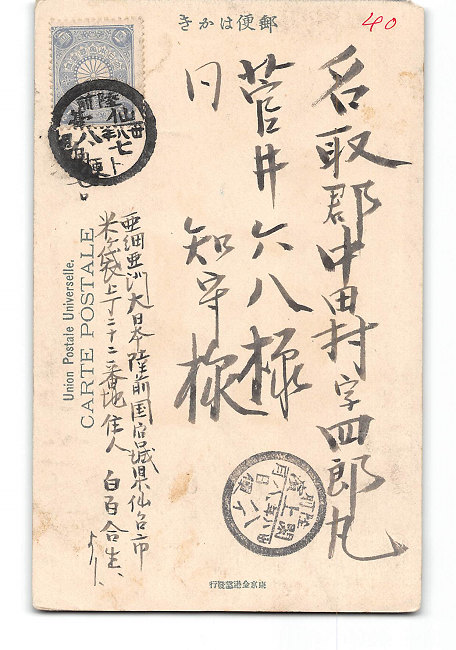 郵便はかき
40
名取郡中田村字四郎丸
菅井六八様
同 知守様
亜細亜洲大日本陸前国宮城県仙台市
米ケ袋上丁二十二番地住人 白百合生、
より
Union Postale Universelle.
CARTE POSTALE
陸前
仙